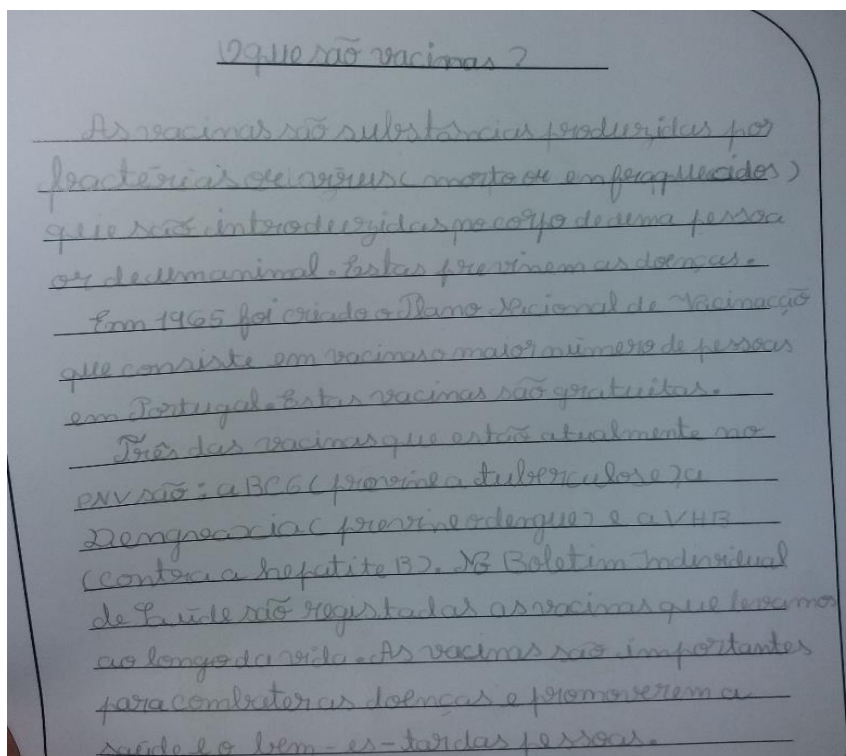 O que são vacinas?
As vacinas são substâncias produzidas por
bractérias ou vírus (morto ou enfraquecidos)
que são introduzidas no corpo de uma pessoa
or de um animal. Estas previnem as doenças.
Em 1965 foi criado o Plano Nacional de Vacinacção
que consiste em vacinas o maior número de pessoas
em Portugal. Estas vacinas são gratuitas.
Três das vacinas que estão atualmente no
PNV são: a BCG (previne a tuberculose) a
(previne o dengue) e a VHB
(contra a hepatite B). No Boletim Individual
de Saúde são registadas as vacinas que levamos
ao longo da vida. As vacinas são importantes
para combater as doenças e promoverem a
saúde e o bem-es-tar das pessoas.